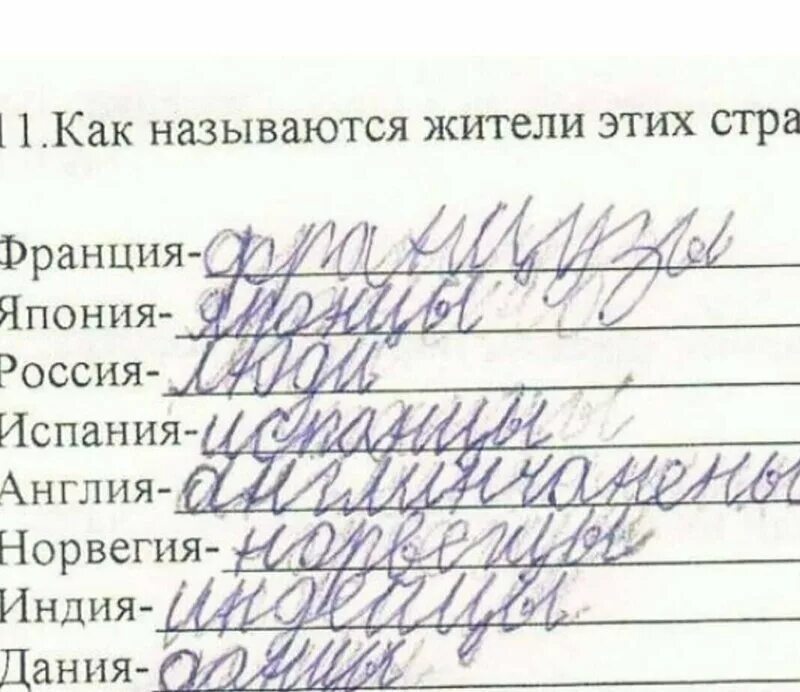 11.Как называются жители этих стра
Франция- французы
Япония- японцы
Россия- люди
Испания- испанцы
Англия- англинчанены
Норвегия- норвегцы
Индия- индейцы
Дания- данцы